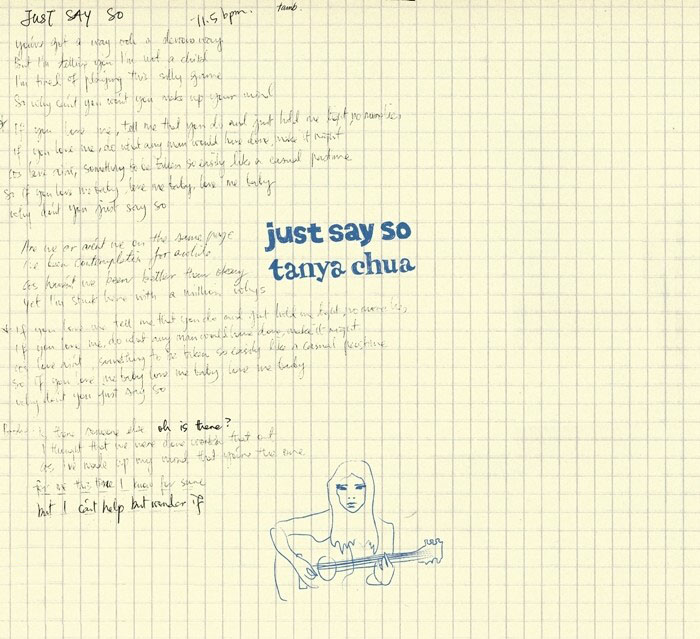 JUST SAY SO -11.5 bpm. tamb.
you've got a way ooh a way
But I'm telling you I'm not a child
I'm tired of playing this silly game
So why can't you won't you make up your mind
If you love me, tell me that you do and just hold me tight, no
If you love me, do what any man would have done, make it right
cos love ain't, something to be taken so easily like a casual pastime
so if you love me baby love me baby, love me baby
why don't you just say so
just say so
tanya chua
Are we or aren't we on the same page
I've been contemplating for awhile
cos haven't we been better than okay
yet I'm stuck here with a million whys
if you love me tell me that you do and just hold me tight, no
if you love me, do what any man would have done, make it right
cos love ain't, something to be taken so easily like a casual pastime
so if you love me baby love me baby love me baby
why don't you just say so
is there someone else oh is there?
I thought that we were done that out
cos I've made up my mind that you're the one
for the time I know for sure
but I can't help but wonder if